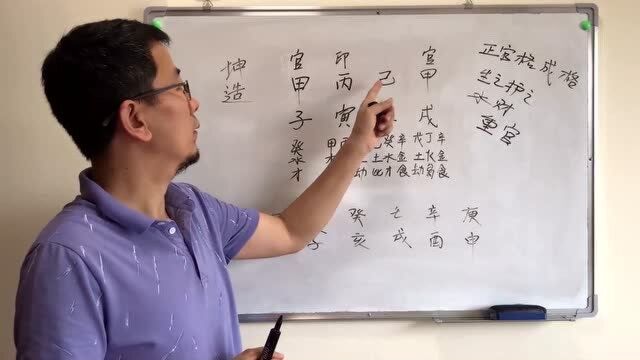 坤造
官 印 官
甲 丙 己 甲
子 寅 戌
癸 甲 癸辛 戊丁辛
土水金 土火金
才 劫 比才食 劫食
癸 辛 庚
子 亥 戌 酉 申
正官格成格
生之护之
水财
重官